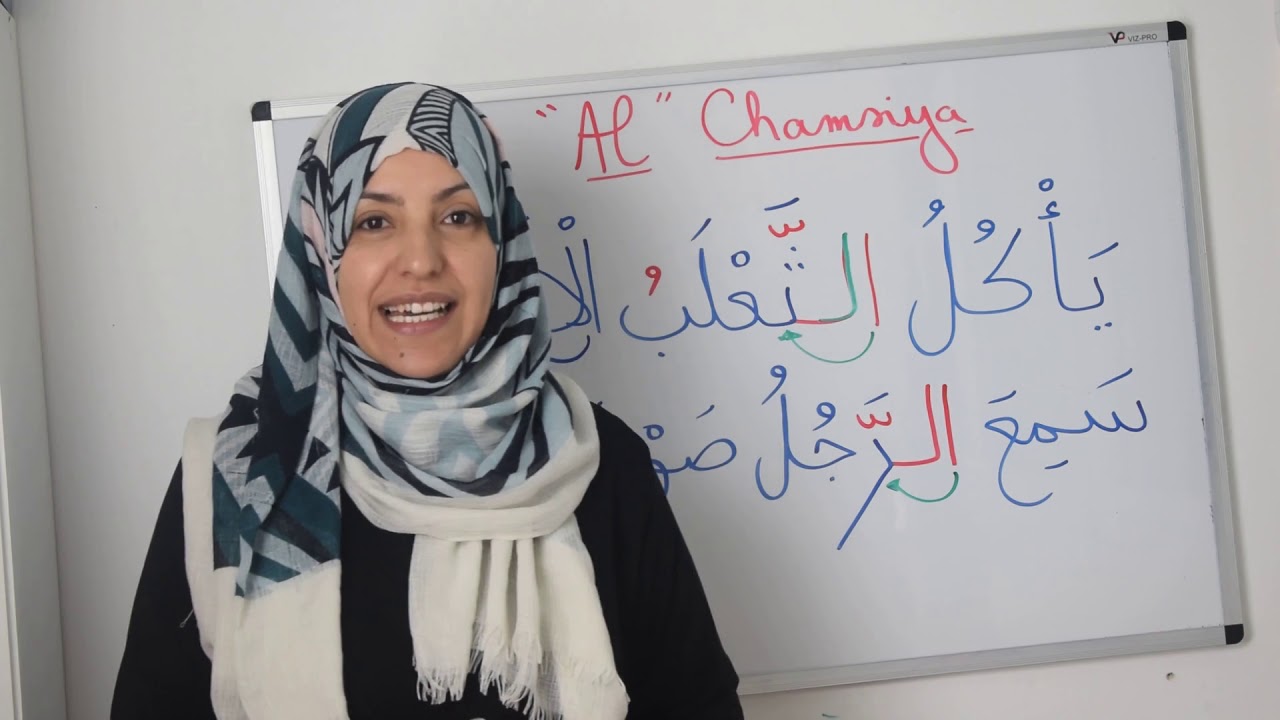 VIZ-PRO
"Al" Chamsiya
يَأْكُلُ الثَّعْلَبُ
سَمِيعَ الرَّجُلُ